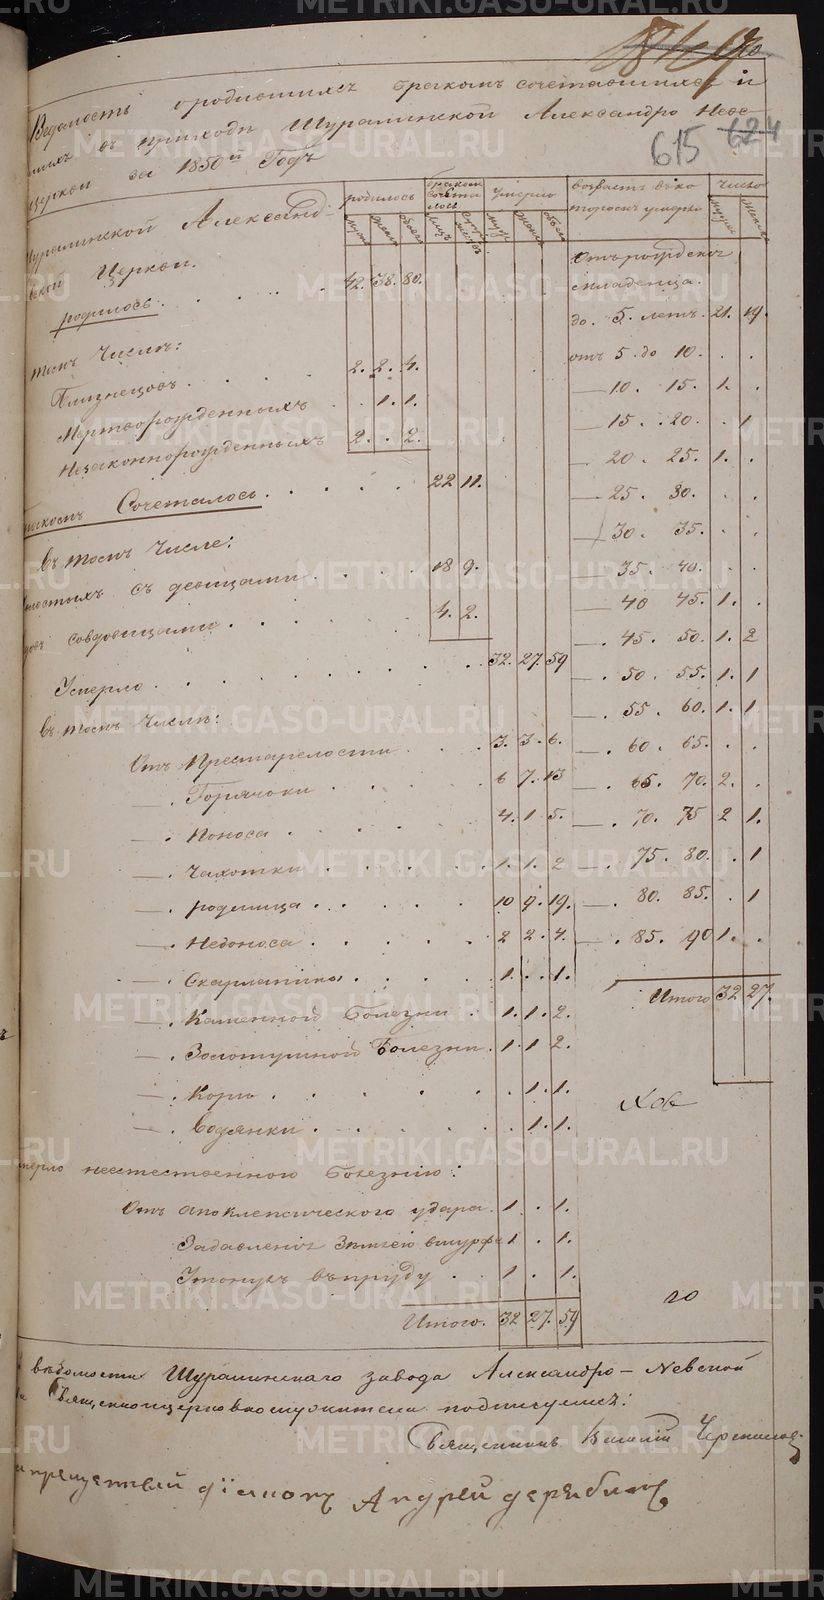 615 624
Ведомость о родившихся бракомъ сочетавшихся и
въ приходѣ Шуралинской Александро Невс-
церкви за 1850й Годъ
родилось бракомъ сочеталось умерло возрастъ число
Шуралинской Александ-
Церкви.
Отъ рожденія
младенца.
родилось 42. 38. 80.
до. 5. летъ. 21. 19.
томъ Числѣ:
отъ 5. до 10. . .
Близнецовъ 2. 2. 4.
— 10. 15. 1. .
Мертворожденныхъ . 1. 1.
— 15. 20. . 1
Незаконнорожденныхъ 2. . 2.
— 20. 25. 1. .
Сочеталось. 22 11.
— 25. 30. . .
— 30. 35. . .
Въ томъ Числѣ:
— 35. 40. . .
съ девицами 18 9.
— 40 45. 1. .
совдовицами 4. 2.
— 45. 50. 1. 2
Умерло 32. 27. 59
— 50. 55. 1. 1
Въ томъ Числѣ:
— 55. 60. 1. 1
Отъ Престарелости 3. 3. 6.
— 60. 65. . .
— Горячки 6 7. 13
— 65. 70. 2. .
— Поноса 4. 1 5.
— 70. 75 2 1.
— Чахотки 1. 1. 2
— 75. 80. . 1
— родимца 10 9. 19.
— 80. 85. . 1
— Недоноса 2 2. 4.
— 85. 90 1. .
— Скарлатины 1. . 1.
Итого 32 27.
— Каменной Болезни 1. 1. 2.
— Золотушной Болезни 1. 1 2.
— Кори . 1. 1.
— Водянки . 1. 1.
неестественною болезнію:
Отъ апоклепсического удара. 1 . 1.
Задавленія Землею вшурфе 1 . 1.
Утонулъ въ пруду 1 . 1.
Итого. 32 27. 59
ведомости Шуралинскаго завода Александро-Невской
Священноцерковнослужители подписуемся:
Священникъ Василій
діаконъ Андрей дерябинъ
METRIKI.GASO-URAL.RU